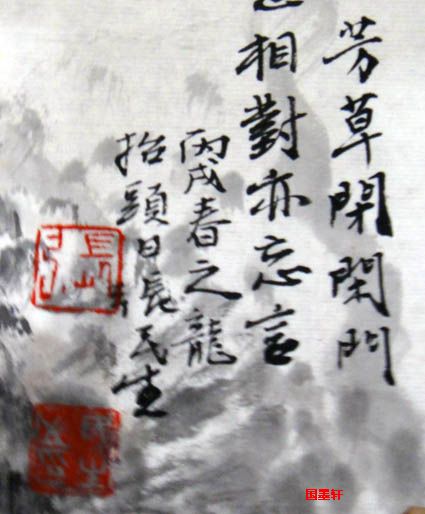 芳草閉閑門
相對亦忘言
丙戌春之龍
抬頭日張民生
張
国雯轩